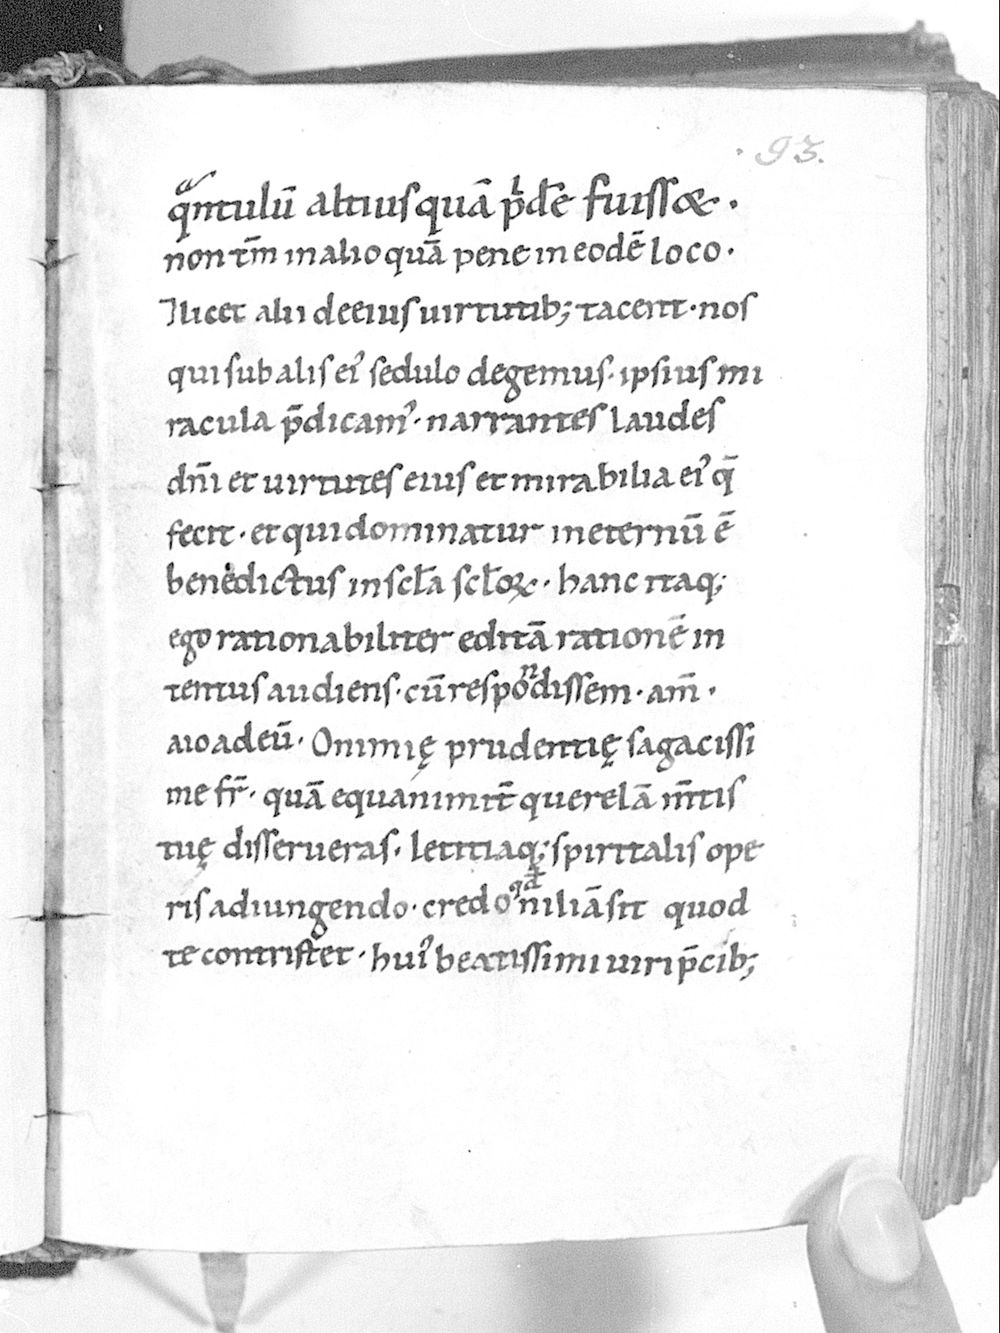 93.
qͣntulū altius quā p̄dc̄e fuisset.
non tm̄ in alio quā pene in eodē loco.
Licet alii de eius uirtutib; tacent. nos
qui sub alis ei᾽ sedulo degemus. ipsius mi
racula p̄dicam᾽. narrantes laudes
dn̄i et uirtutes eius et mirabilia ei᾽ q̄
fecit. et qui dominatur in eternū ē
benedictus in scl̄a scl̄oꝝ. hanc itaq;
ego rationabiliter editā rationē in
tentus audiens. cū respondissem. am̄.
aio ad eū. O nimię prudentię sagacissi
me fr̄. quā equanimit̄ querelā m̄tis
tuę disserueras. letitiaq; spiritalis ope
ris adiungendo. credo qđ niliā sit quod
te contristet. hui᾽ beatissimi uiri p̄cib;